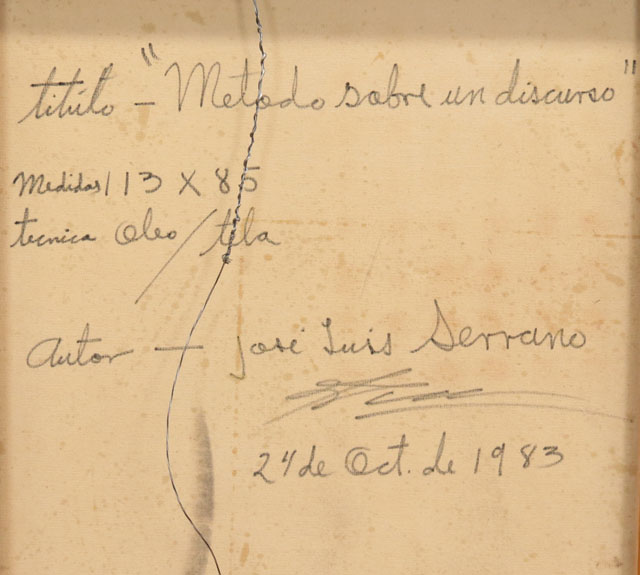 titúlo - "Metodo sobre un discurso"
Medidas 113 X 85
tecnica Oleo/tela
Autor - José Luis Serrano
24 de Oct. de 1983